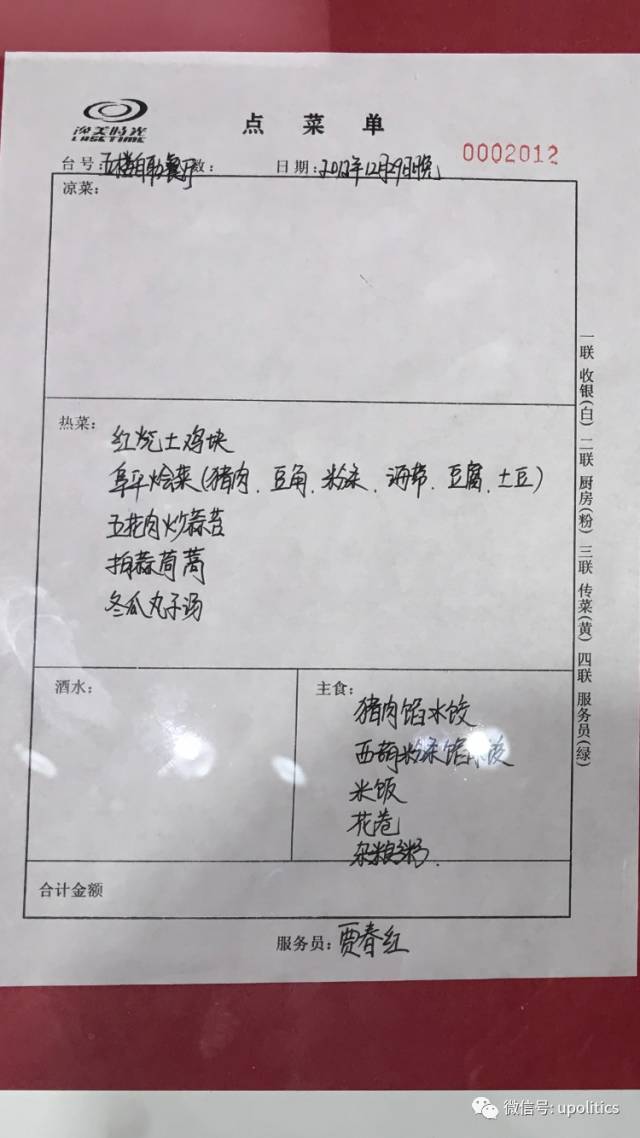 逸美時光
LASETIME
点菜单
台号: 五楼自助餐厅 数: 日期: 2012年12月29日晚 0002012
凉菜:
热菜:
红烧土鸡块
阜平烩菜(猪肉、豆角、粉条、海带、豆腐、土豆)
五花肉炒蒜苔
拍蒜茼蒿
冬瓜丸子汤
酒水:
主食:
猪肉馅水饺
西葫粉条馅水饺
米饭
花卷
杂粮粥.
合计金额
服务员: 贾春红
一联 收银(白) 二联 厨房(粉) 三联 传菜(黄) 四联 服务员(绿)
微信号: upolitics